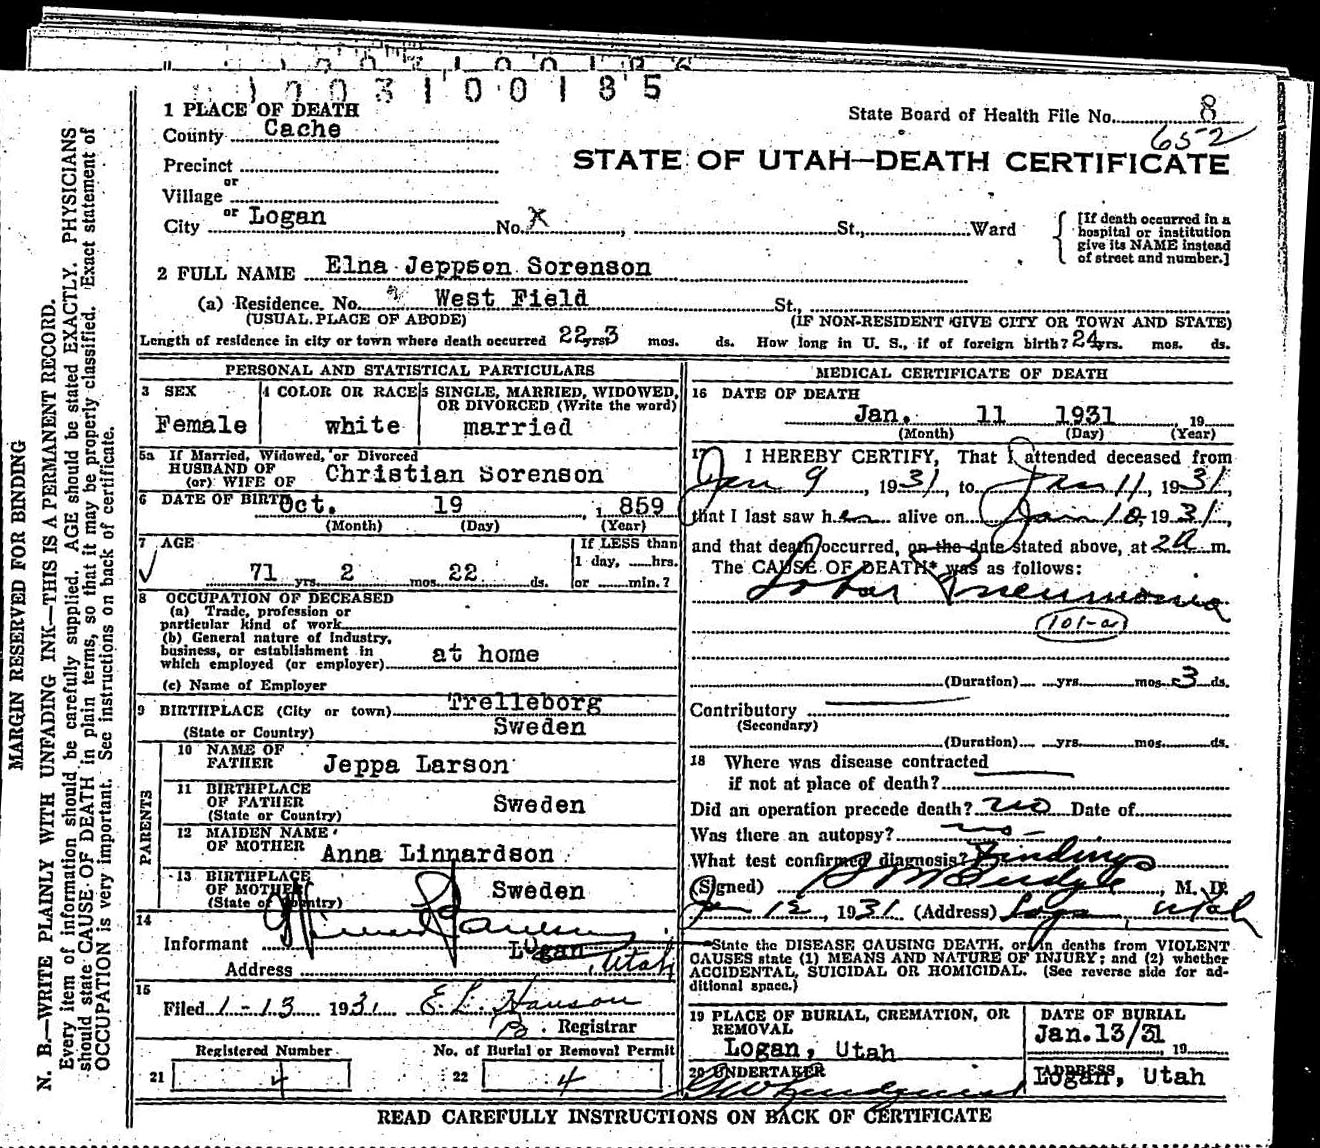 1 0 0 3 1 0 0 1 8 5
1 PLACE OF DEATH
State Board of Health File No. 8
County Cache
652
STATE OF UTAH—DEATH CERTIFICATE
Precinct
or
Village
or
City Logan No. X St., Ward
[If death occurred in a
hospital or institution
give its NAME instead
of street and number.]
2 FULL NAME Elna Jeppson Sorenson
(a) Residence. No. West Field St.
(USUAL PLACE OF ABODE) (IF NON-RESIDENT GIVE CITY OR TOWN AND STATE)
Length of residence in city or town where death occurred 22 yrs. 3 mos. ds. How long in U. S., if of foreign birth? 24 yrs. mos. ds.
PERSONAL AND STATISTICAL PARTICULARS
3 SEX
Female
4 COLOR OR RACE
white
5 SINGLE, MARRIED, WIDOWED,
OR DIVORCED (Write the word)
married
5a If Married, Widowed, or Divorced
HUSBAND OF
(or) WIFE OF Christian Sorenson
6 DATE OF BIRTH Oct. 19 , 1 859
(Month) (Day) (Year)
7 AGE
71 yrs. 2 mos. 22 ds.
If LESS than
1 day, hrs.
or min.?
8 OCCUPATION OF DECEASED
(a) Trade, profession or
particular kind of work
(b) General nature of Industry,
business, or establishment in
which employed (or employer) at home
(c) Name of Employer
9 BIRTHPLACE (City or town) Trelleborg
(State or Country) Sweden
PARENTS
10 NAME OF
FATHER Jeppa Larson
11 BIRTHPLACE
OF FATHER Sweden
(State or Country)
12 MAIDEN NAME
OF MOTHER Anna Linnardson
13 BIRTHPLACE
OF MOTHER Sweden
(State or Country)
14
Informant
Address Logan, Utah
15
Filed 1-13 1931 E. L. Hanson
Registrar
Registered Number
21 4
No. of Burial or Removal Permit
22 4
MEDICAL CERTIFICATE OF DEATH
16 DATE OF DEATH
Jan. 11 1931 19
(Month) (Day) (Year)
17 I HEREBY CERTIFY, That I attended deceased from
Jan 9, 1931, to Jan 11, 1931,
that I last saw her alive on Jan 10, 1931,
and that death occurred, on the date stated above, at 2a m.
The CAUSE OF DEATH* was as follows:
Lobar Pneumonia
101-a
(Duration) yrs. mos. 3 ds.
Contributory
(Secondary)
(Duration) yrs. mos. ds.
18 Where was disease contracted
if not at place of death?
Did an operation precede death? no Date of
Was there an autopsy? no
What test confirmed diagnosis? Findings
(Signed) , M. D.
Jan 12, 1931 (Address) Logan, Utah
*State the DISEASE CAUSING DEATH, or in deaths from VIOLENT
CAUSES state (1) MEANS AND NATURE OF INJURY; and (2) whether
ACCIDENTAL, SUICIDAL OR HOMICIDAL. (See reverse side for ad-
ditional space.)
19 PLACE OF BURIAL, CREMATION, OR
REMOVAL
Logan, Utah
DATE OF BURIAL
Jan.13/31 19
20 UNDERTAKER
ADDRESS
Logan, Utah
READ CAREFULLY INSTRUCTIONS ON BACK OF CERTIFICATE
MARGIN RESERVED FOR BINDING
N. B.—WRITE PLAINLY WITH UNFADING INK—THIS IS A PERMANENT RECORD.
Every item of information should be carefully supplied. AGE should be stated EXACTLY. PHYSICIANS
should state CAUSE OF DEATH in plain terms, so that it may be properly classified. Exact statement of
OCCUPATION is very important. See instructions on back of certificate.